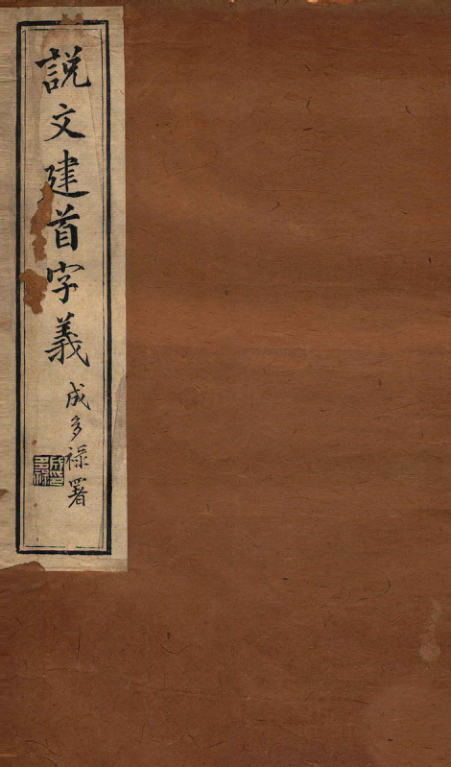 說文建首字義
成多祿署